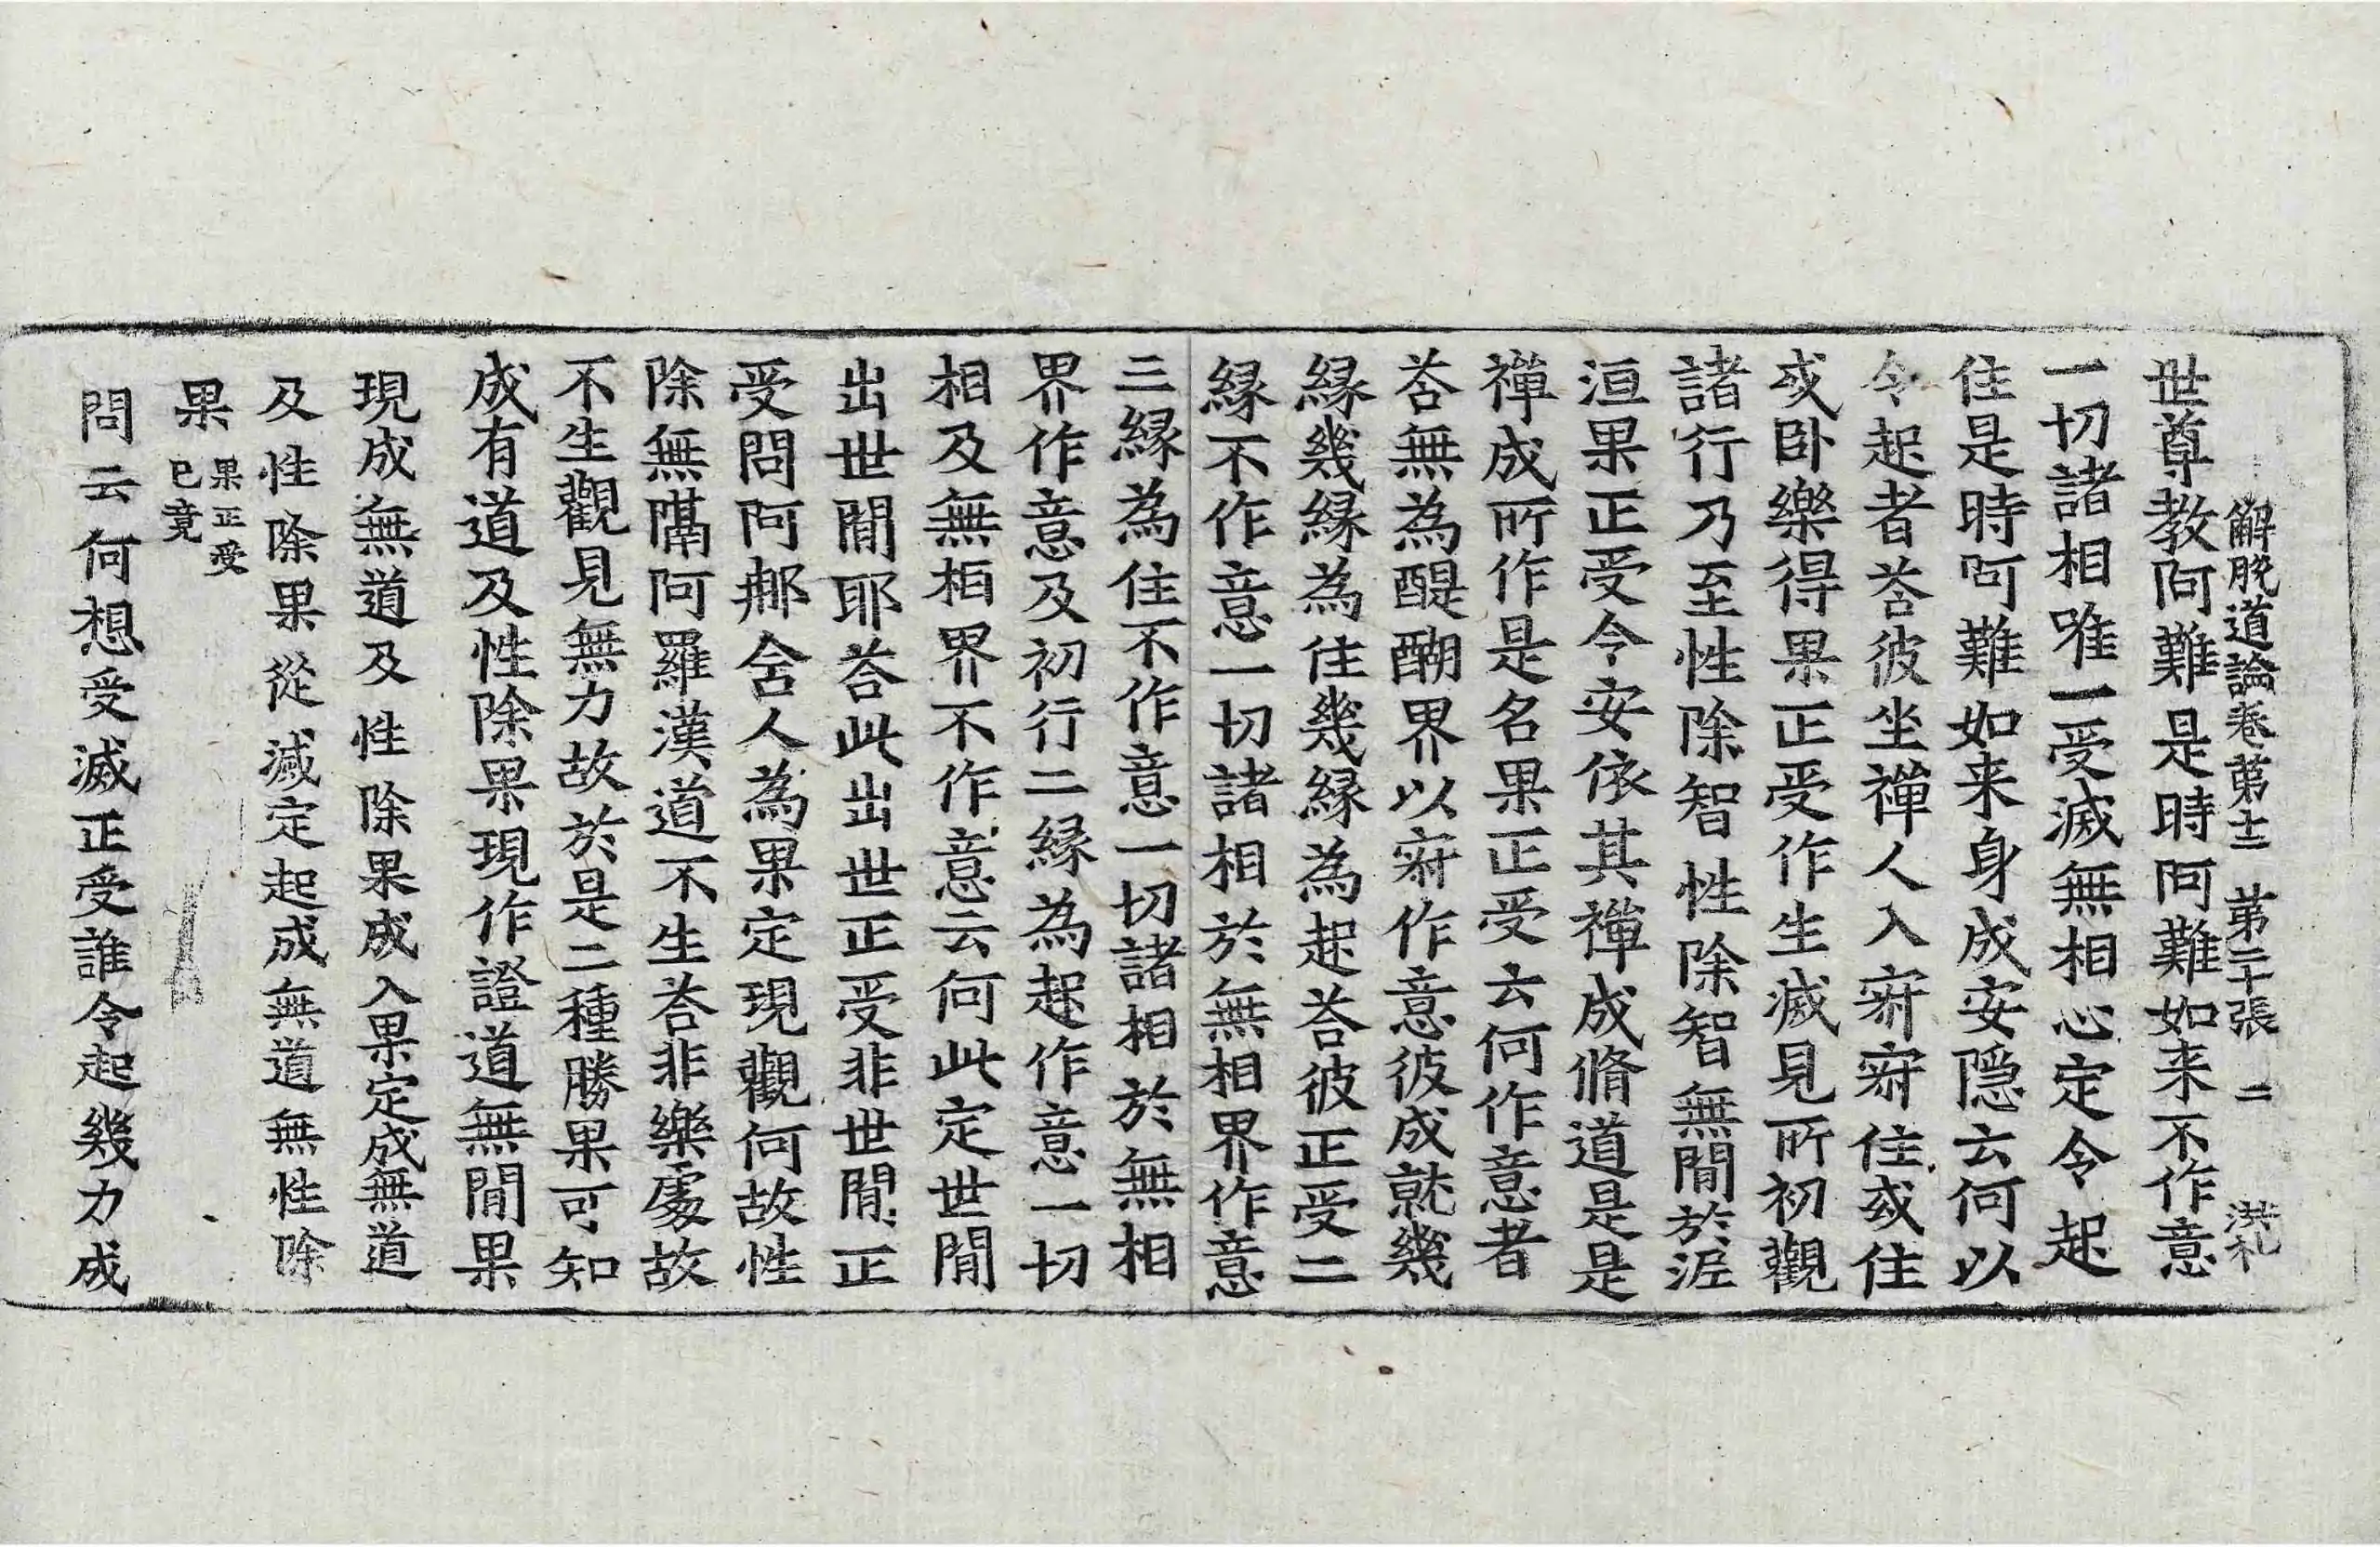 解脫道論卷第十二 第二十張 二 洪札
世尊教阿難是時阿難如来不作意
一切諸相唯一受滅無相心定令起
住是時阿難如来身成安隱云何以
令起者荅彼坐禪人入寂寂住或住
或卧樂得果正受作生滅見所初觀
諸行乃至性除智性除智無間於泥
洹果正受令安依其禪成脩道是是
禪成所作是名果正受云何作意者
荅無為醍醐界以寂作意彼成就幾
緣幾緣為住幾緣為起荅彼正受二
緣不作意一切諸相於無相界作意
三緣為住不作意一切諸相於無相
界作意及初行二緣為起作意一切
相及無相界不作意云何此定世間
出世間耶荅此出世正受非世間正
受問阿那舍人為果定現觀何故性
除無隔阿羅漢道不生荅非樂處故
不生觀見無力故於是二種勝果可知
成有道及性除果現作證道無間果
現成無道及性除果成入果定成無道
及性除果從滅定起成無道無性除
果 果正受已竟
問云何想受滅正受誰令起幾力成